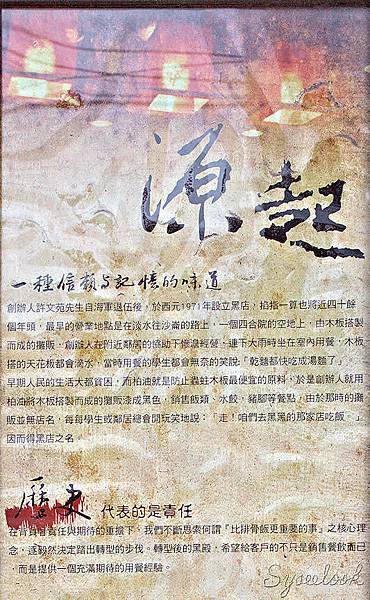 源起
一種信賴与記憶的味道
創辦人許文苑先生自海軍退伍後，於西元1971年設立黑店，掐指一算也將近四十餘
個年頭，最早的營業地點是在淡水往沙崙的路上，一個四合院的空地上，由木板搭製
而成的攤販，創辦人在附近鄰居的協助下慘澹經營，連下大雨時坐在室內用餐，木板
搭的天花板都會滴水，當時用餐的學生都會無奈的笑說「乾麵都快吃成湯麵了」。
早期人民的生活大都貧困，而柏油就是防止蟲蛀木板最便宜的原料，於是創辦人就用
柏油將木板搭製而成的攤販漆成黑色，銷售飯類、水餃，豬腳等餐點，由於那時的攤
販並無店名，每每學生或鄰居總會開玩笑地說：「走！咱們去黑黑的那家店吃飯。」
因而得黑店之名
歷史 代表的是責任
在背負著責任與期待的重擔下，我們不斷思索何謂「比排骨飯更重要的事」之核心理
念，遂毅然決定踏出轉型的步伐。轉型後的黑殿，希望給客戶的不只是銷售餐飲而已
，而是提供一個充滿期待的用餐經驗。
Syselook